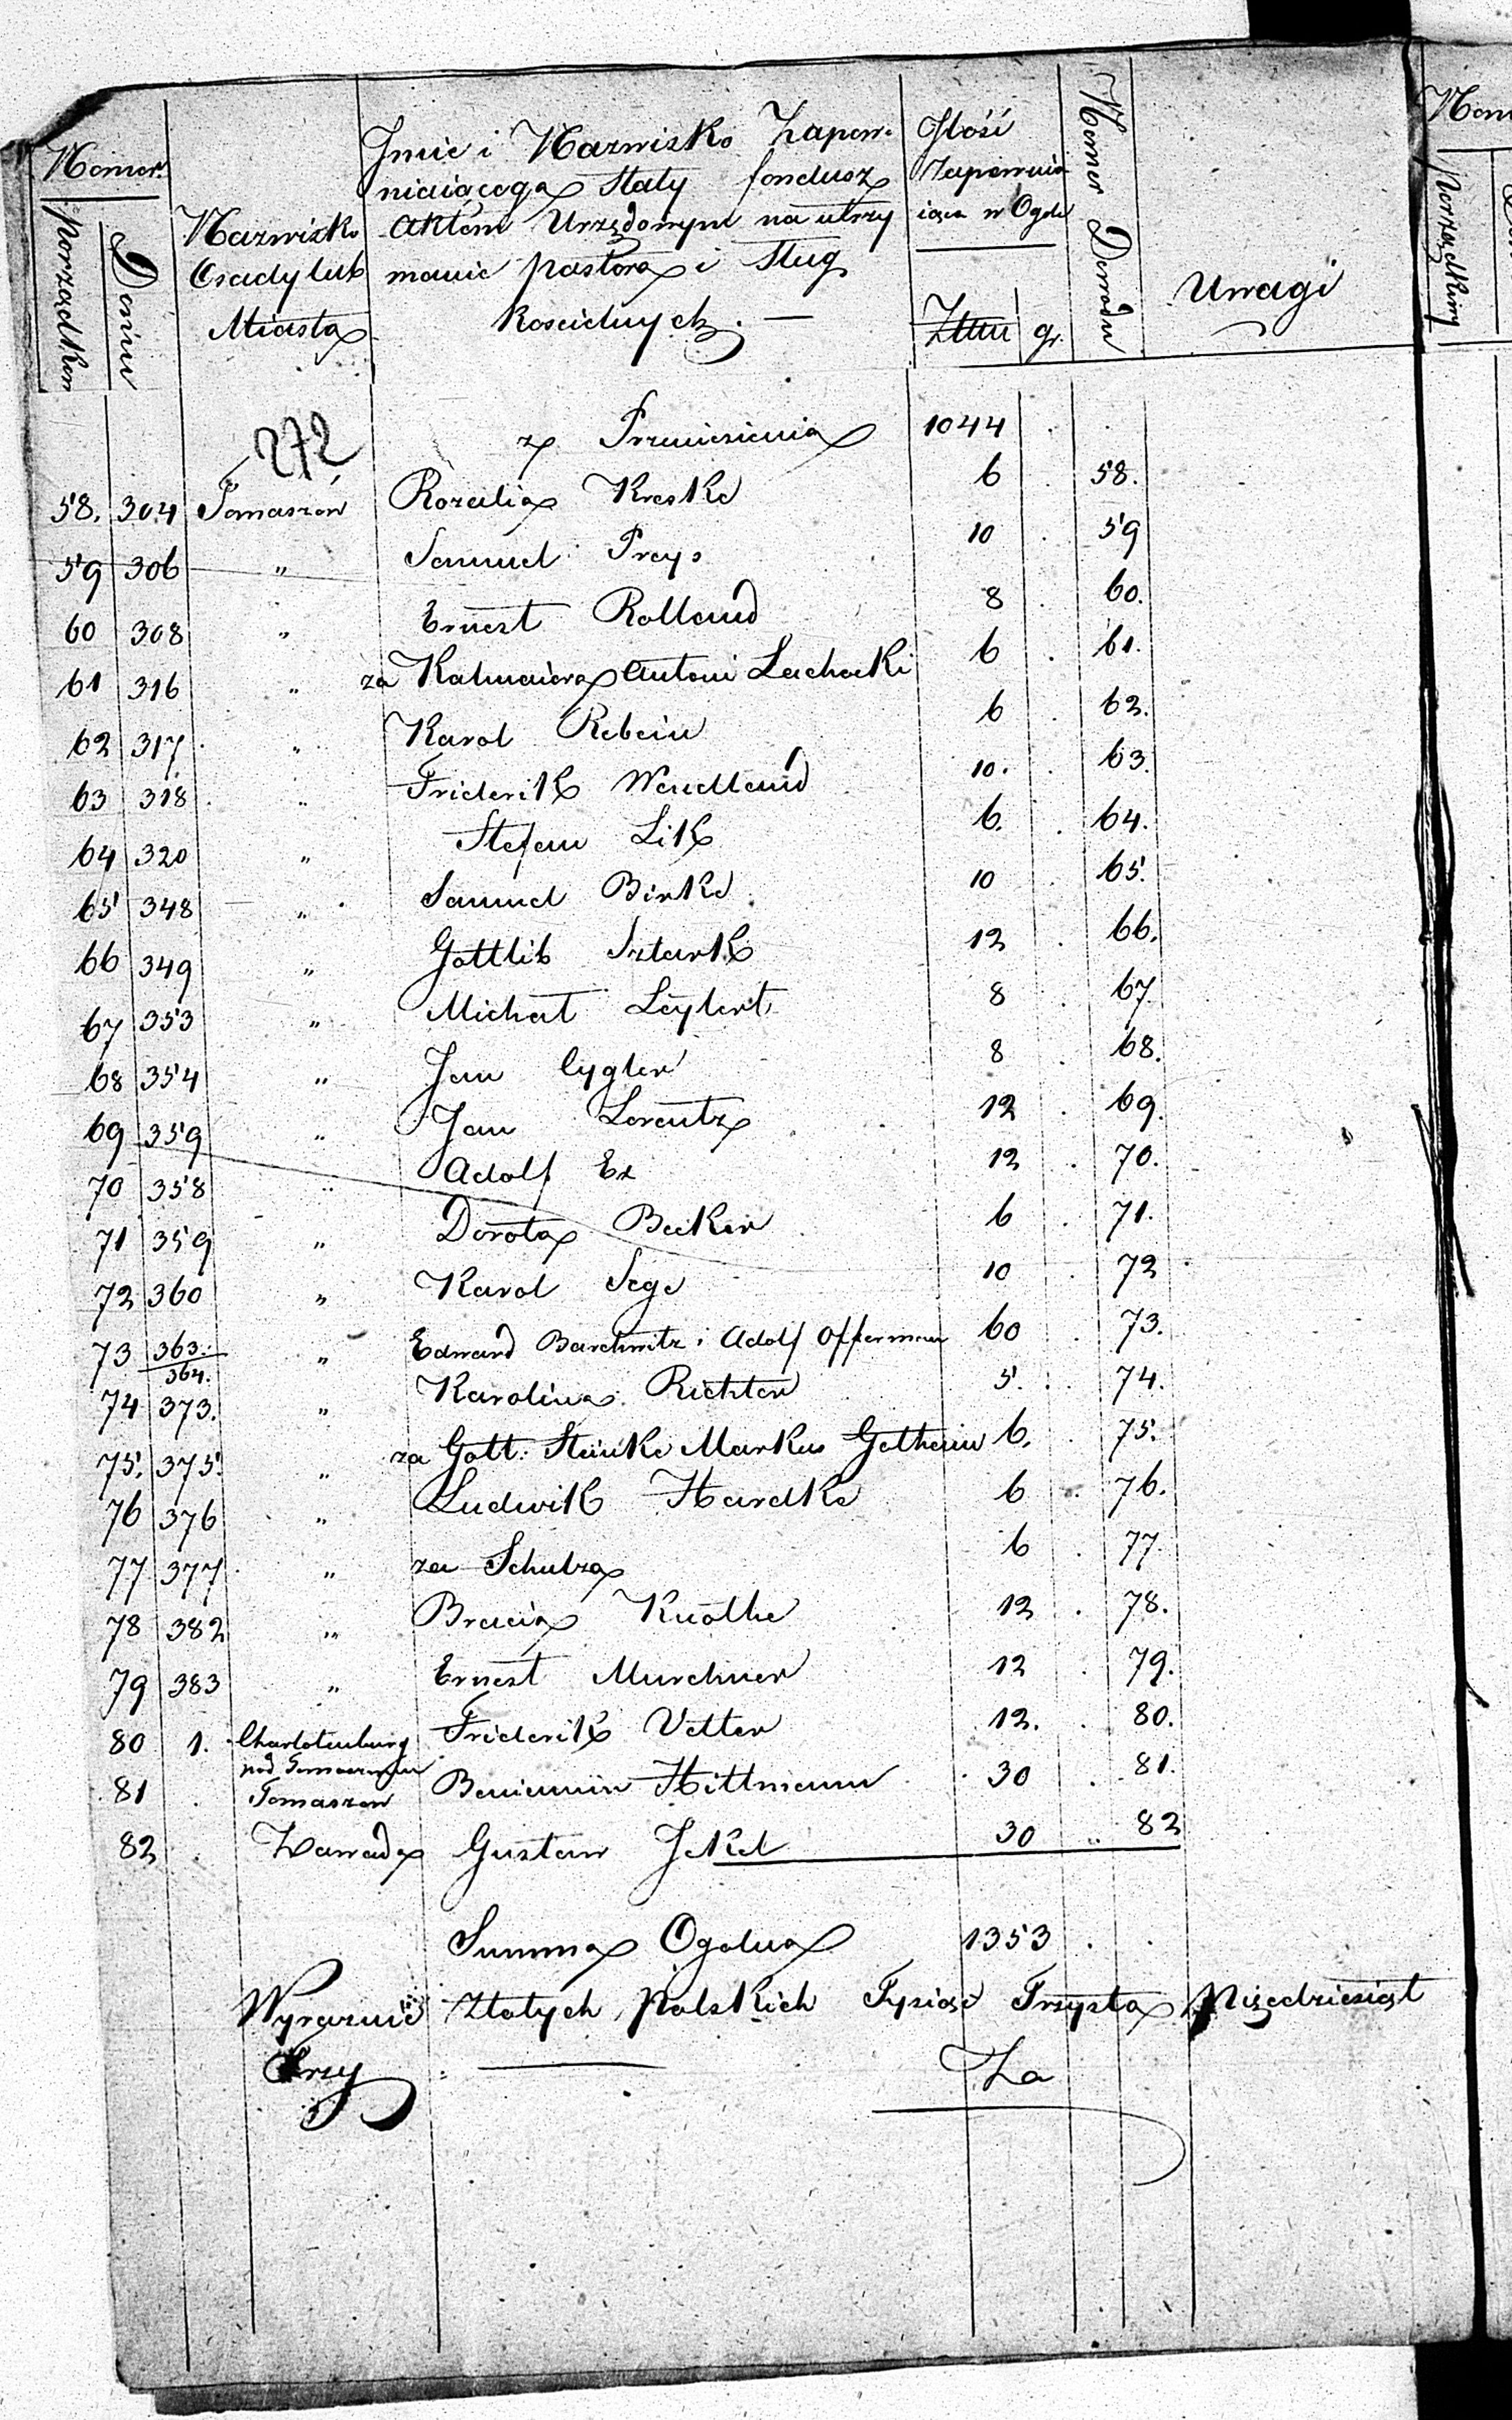 Nomer
porządkow
Domu
Nazwisko
Osady lub
Miasta
Jmie i Nazwisko Zapew-
niaiącego Stały fondusz
aktem Urzędowym na utrzy
manie pastora i Sług
Kościelnych. —
Jlość
Zapewnia
iąca w Ogóle
Złtu gr.
Nomer Dowodu
Uwagi
Nom
porządkowy
272
z Przeniesienia 1044
58. 304 Tomaszow Rozalia Kreske 6 58.
59 306 " Samuel Preys 10 59
60 308 " Ernest Rolland 8 60.
61 316 " za Antoni 6 61.
62 317 " Karol Rebein 6 62.
63 318 " Friderik Wendland 10. 63.
64 320 " Stefan Lik 6. 64.
65 348 " Samuel Birke 10 65.
66 349 " Gottlib Sztark 12 66.
67 353 " Michał Leylert 8 67.
68 354 " Jan Cygler 8 68.
69 359 " Jan Lorentz 12 69.
70 358 " Adolf 12 70.
71 359 " Dorota Becker 6 71.
72 360 " Karol Sege 10 72
73 363. 364. " Edward Barchwitz i Adolf Offerman 60 73.
74 373. " Karolina Richter 5. 74.
75. 375. " za Gott: Steinke Markus 6. 75.
76 376 " Ludwik Hardke 6 76.
77 377 " za Schulza 6 77.
78 382 " Bracia Knothe 12 78.
79 383 " Ernest Murchner 12 79.
80 1. Charlotenburg Friderik Vetter 12. 80.
pod Tomaszowem
81 Tomaszow Beniamin Hittmann 30 81.
82 Zawada Gustaw Jekel 30 " 82
Summa Ogolna 1353
Wyraznie Złotych Polskich Tysiąc Trzysta Pięcdziesiąt
Trzy — Za